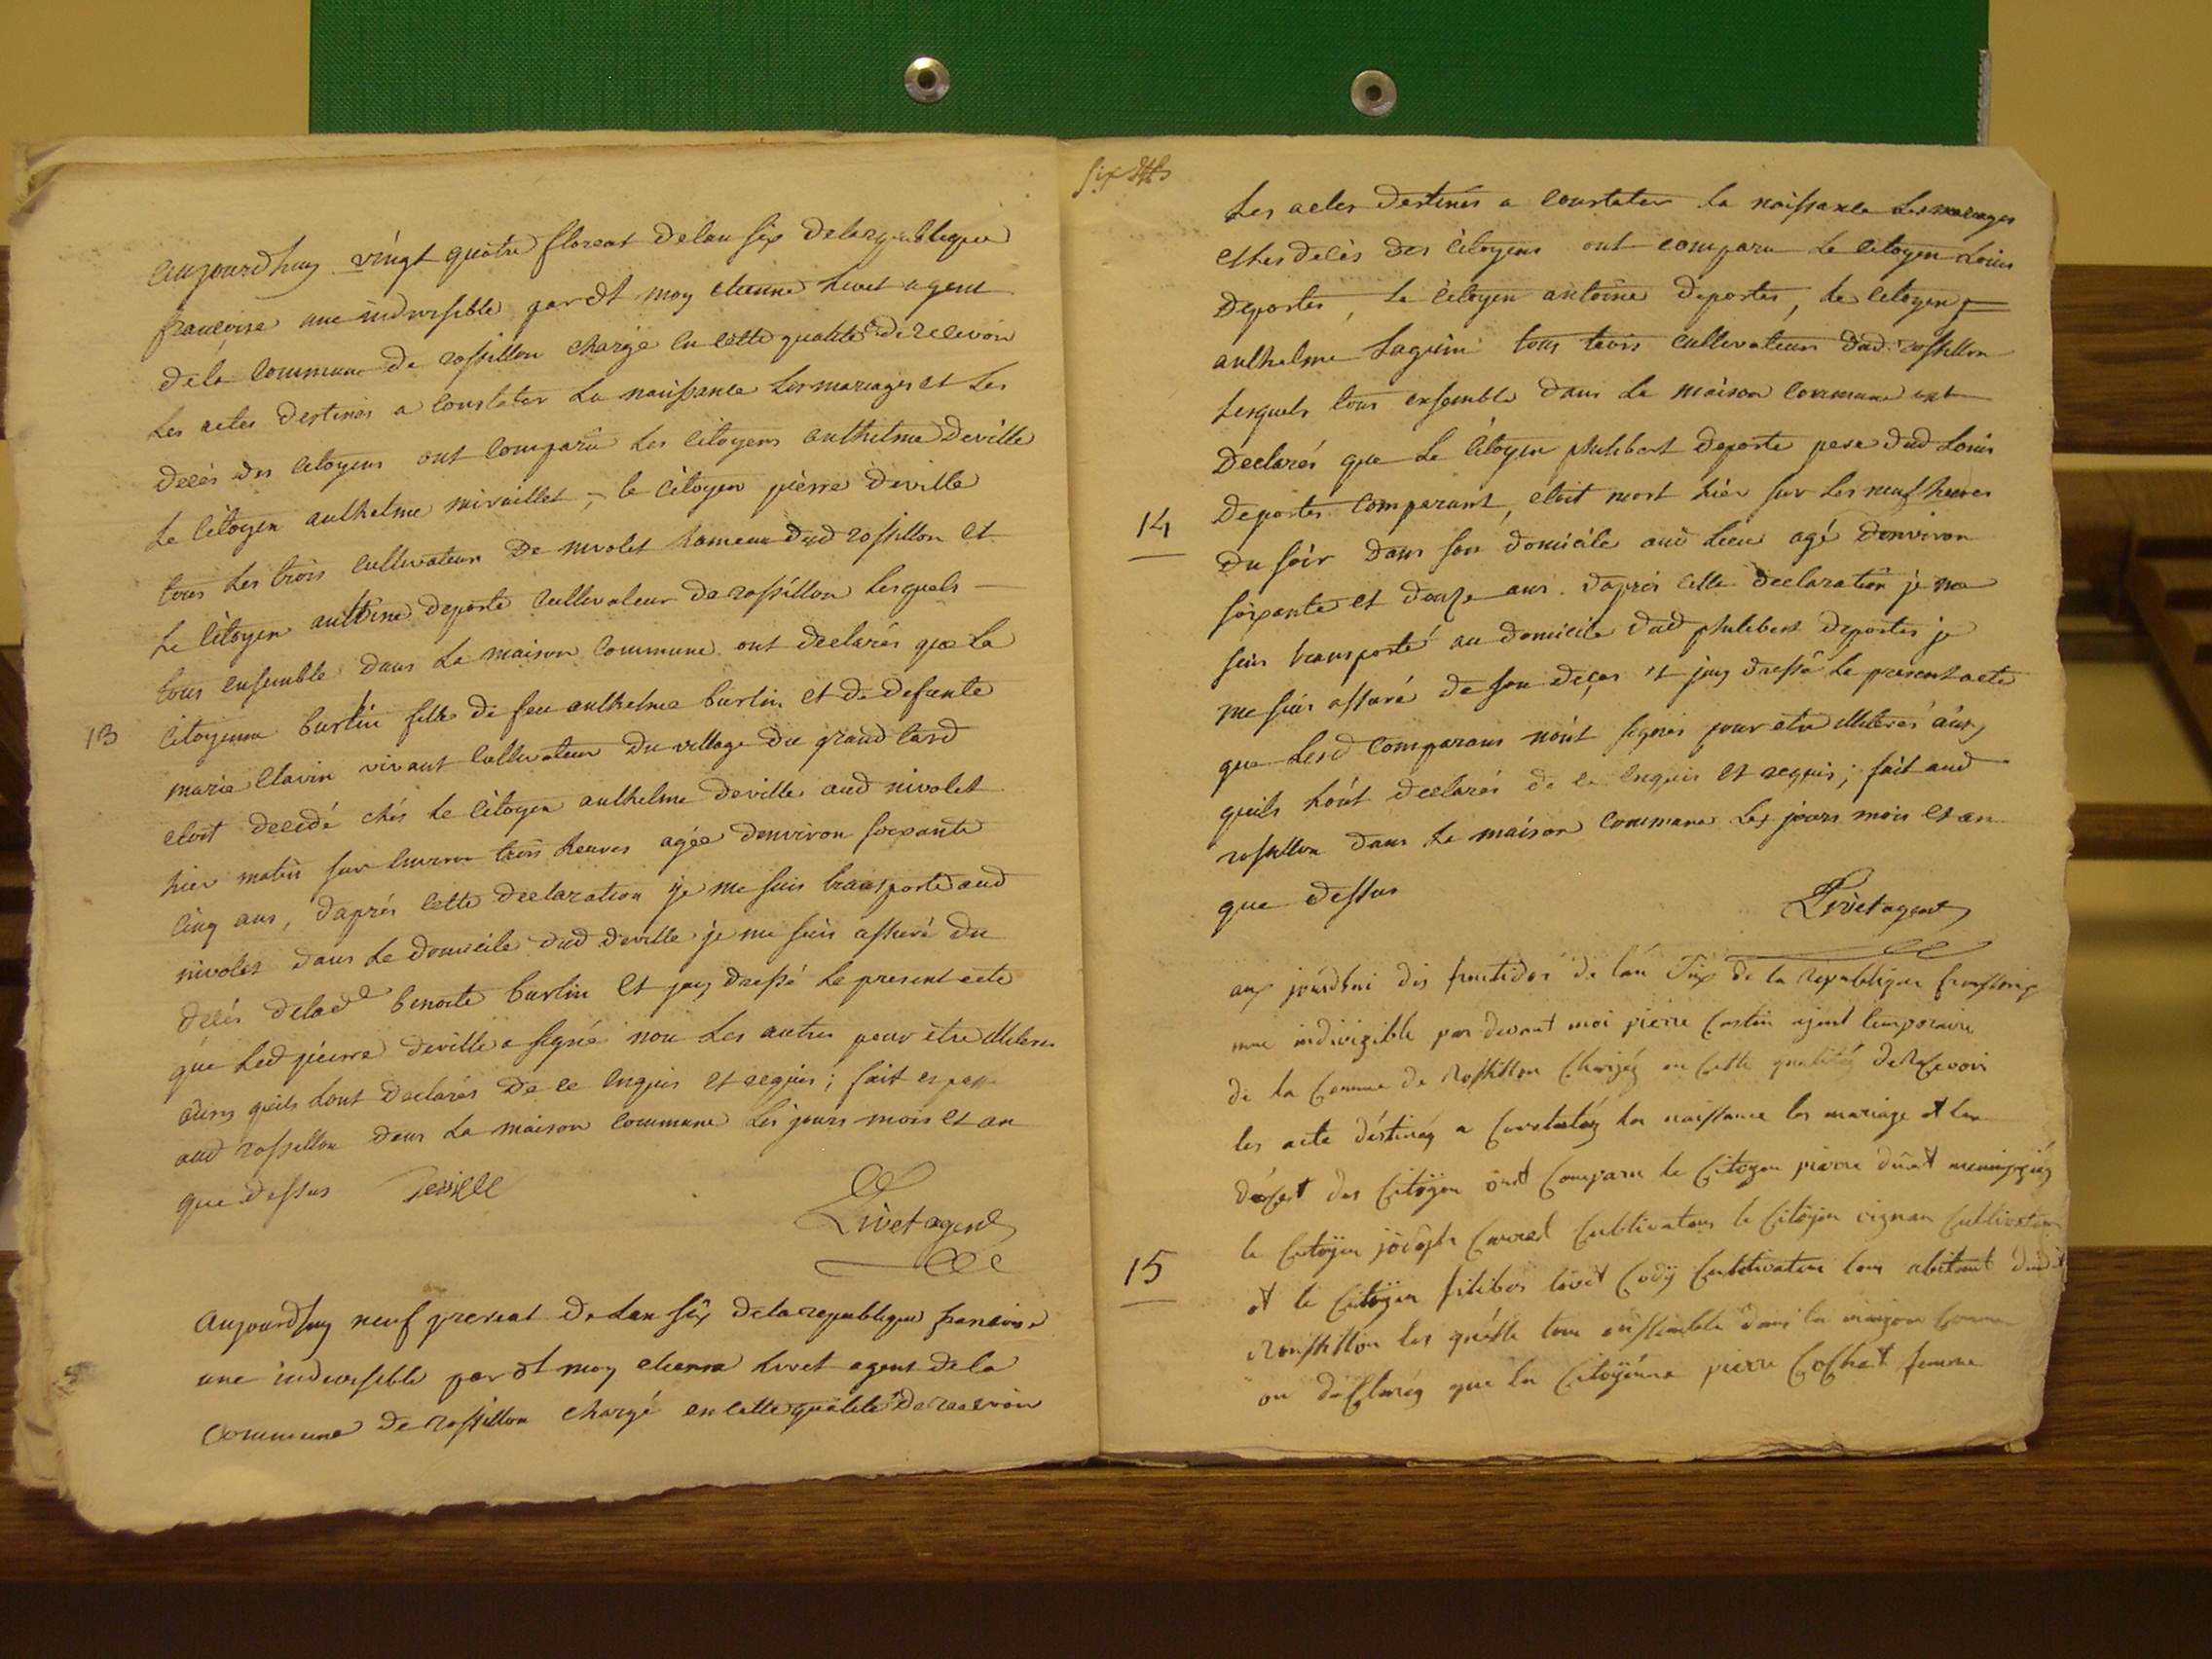 aujourdhuy vingt quatre floreal delan six delarepublique
françoise une indivisible pardt moy etienne Livet agent
dela Commune de rossillon chargé en cette qualité de recevoir
Les actes destinés a Constater La naissance Les mariages et Les
decès des Citoyens ont Comparu Les Citoyens anthelme Deville
Le Citoyen anthelme miraillet, le Citoyen pierre Deville
tous Les trois Cultivateurs De nivolet hameau dud rossillon et
Le Citoyen anthoine deporte Cultivateur de rossillon Lesquels
tous ensemble dans La maison Commune ont declarés que La
13
Citoyenne burtin fille de feu anthelme burtin et de defunte
marie Clavin vivant Cultivateur du village du grand
etoit decedé chés Le Citoyen anthelme deville aud nivolet
hier matin sur environ trois heures agée denviron soixante
Cinq ans, daprés cette declaration je me suis transporté aud
nivolet dans Le domicile dud deville je me suis assuré du
decés delade benoite burtin et jay dressé Le present acte
que Led pierre deville a signé non Les autres pour etre illiteres
ainsy quils Lont declarés de ce enquis et requis; fait
aud rossillon dans La maison Commune Les jours mois et an
que dessus Deville
Livet agent
aujourdhuy neuf prereal de Lan six dela republique francoise
une indivisible par dt moy etienne Livet agent de la
Commune de rossillon chargé en cette qualité de recevoir
six
Les actes destinés a Constater La naissance Les mariages
et Les decès des Citoyens ont comparu Le Citoyen Louis
Deportes, Le Citoyen antoine Deportes, Le Citoyen
anthelme Laguin tous trois Cultivateurs dud rossillon
Lesquels tous ensemble dans La maison Commune ont
Declarés que Le Citoyen philibert Deporte pere dud Louis
14
Deportes Comparant, etoit mort hier sur Les neuf heures
du soir dans son domicile aud Lieu agé denviron
soixante et douze ans. daprés cette declaration je me
suis transporté au domicile dud philibert deportes je
me suis assuré de son deçes et jay dressé Le present acte
que Lesd Comparans nont signés pour etre illiterés ainsy
quils Lont declarés de ce enquis et requis; fait aud
rossillon dans La maison Commune Les jours mois et an
que dessus
Livet agent
aux jourdhui dis frutidor de lan Six de la republique
une indivizible par devant moi pierre agent temporaire
de la Comune de Rossillon Chargéz en Cette qualitéz de Recevoir
les acte déstinéz a Constatéz la naissance les mariage et les
déces des Citöyen ont Comparu le Citoyen pierre
le Citöyen joseph Carrel Cultivateur le Citöyen vignan Cultivateur
15
et le Citöyen filiber livet Cultivateur tous abitant dudit
Rousillion les tous enssemble dans la maizon Comune
on declaréz que la Citöyenne pierre femme